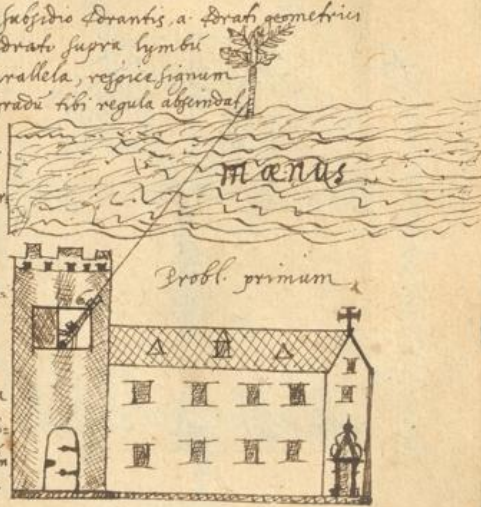 subsidio Qdrantis, a. Qdrati geometrici
drati supra lymbū
rallela, respice signum
gradū tibi regula abscindat
mænus
Probl. primum